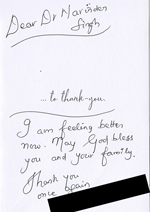 Dear Dr Narinder
Singh
... to thank-you.
I am feeling better
now. May God bless
you and your family.
Thank you
once again